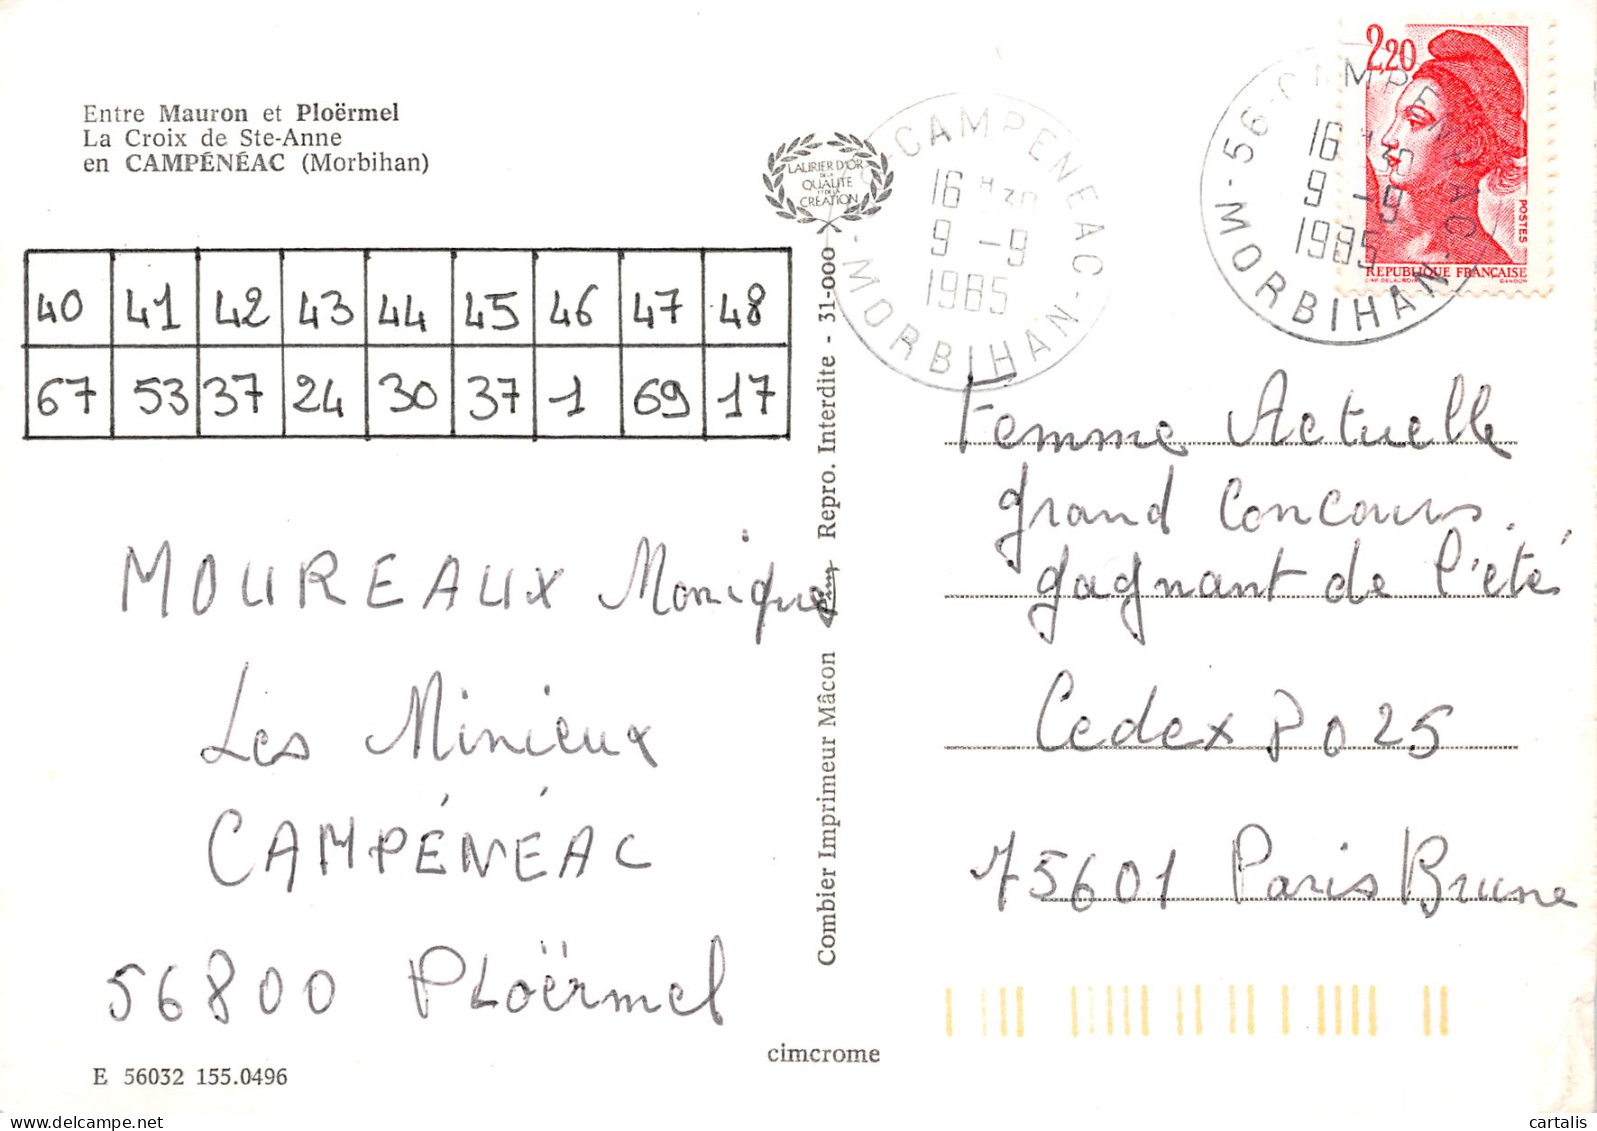 Entre Mauron et Ploërmel
La Croix de Ste-Anne
en CAMPÉNÉAC (Morbihan)
40 41 42 43 44 45 46 47 48
67 53 37 24 30 37 1 69 17
MOUREAUX Monique
Les Minieux
CAMPÉNÉAC
56800 Ploërmel
E 56032 155.0496
LAURIER D'OR
DE LA
QUALITE
ET DE LA
CREATION
Combier Imprimeur Mâcon Repro. Interdite - 31-000
cimcrome
CAMPENEAC
16 H30
9 -9
1985
- MORBIHAN -
56-CAMPENEAC
16 H30
9 -9
1985
- MORBIHAN -
2,20
POSTES
REPUBLIQUE FRANÇAISE
D'AP. DELACROIX GANDON
Femme Actuelle
grand Concours.
gagnant de l'été
Cedex 8025
75601 Paris Brune
cartalis